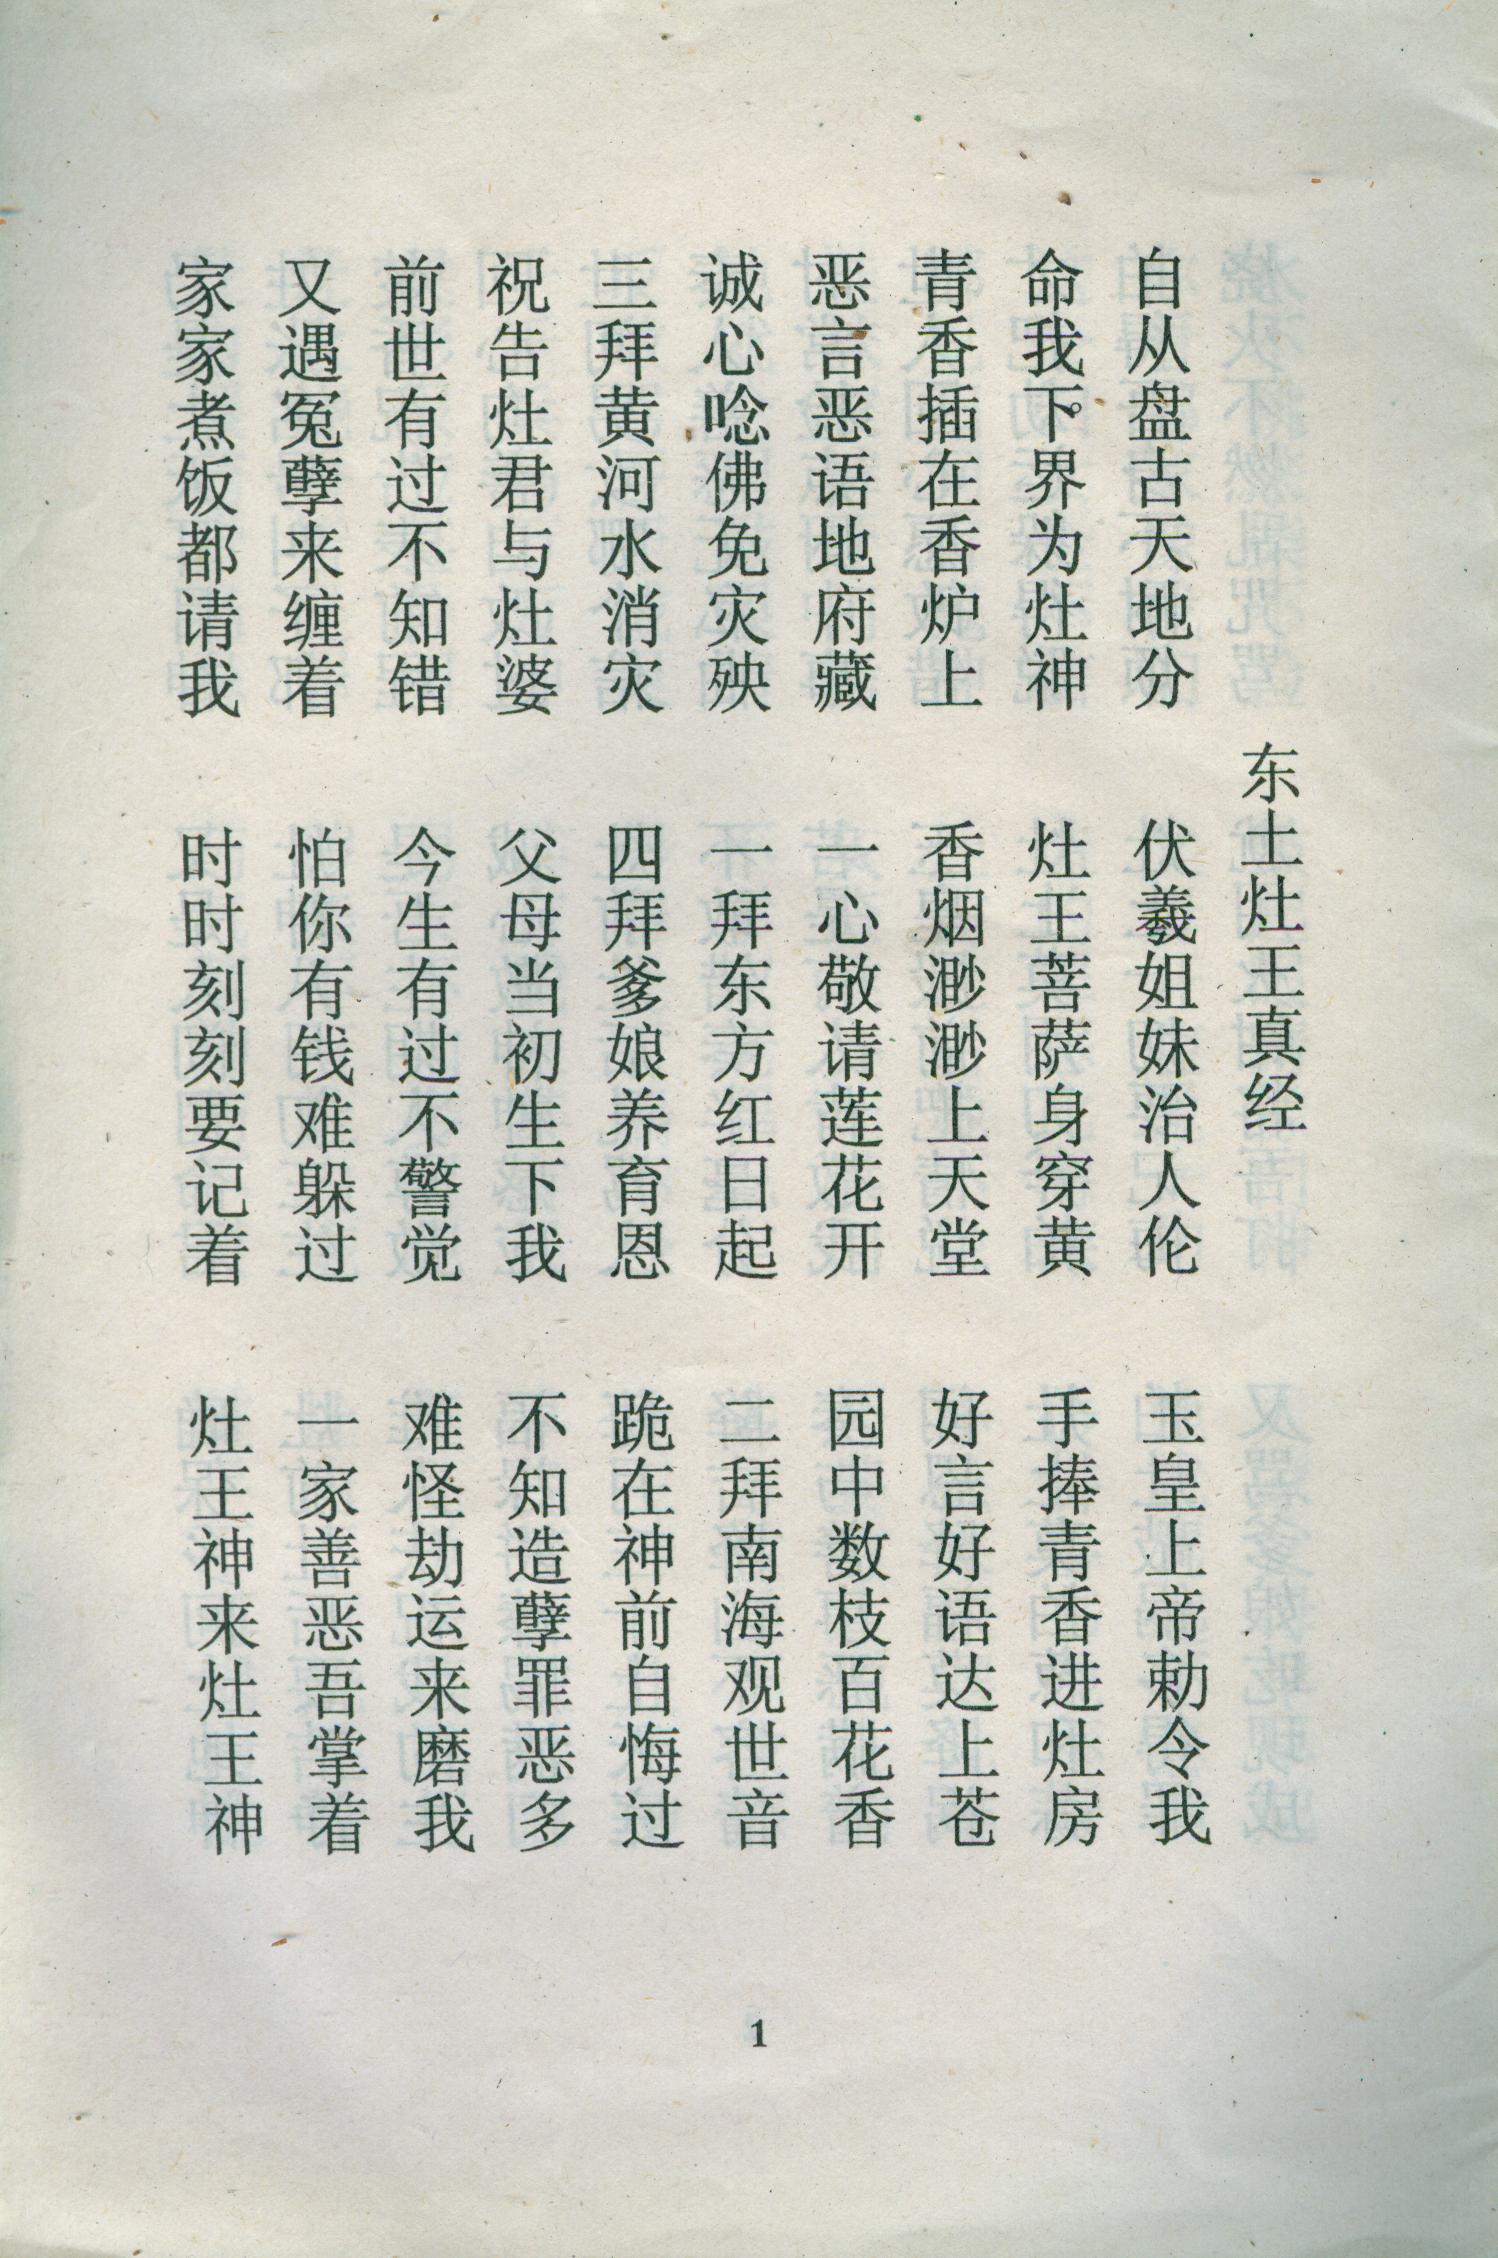 东土灶王真经
自从盘古天地分 伏羲姐妹治人伦 玉皇上帝勅令我
命我下界为灶神 灶王菩萨身穿黄 手捧青香进灶房
青香插在香炉上 香烟渺渺上天堂 好言好语达上苍
恶言恶语地府藏 一心敬请莲花开 园中数枝百花香
诚心唸佛免灾殃 一拜东方红日起 二拜南海观世音
三拜黄河水消灾 四拜爹娘养育恩 跪在神前自悔过
祝告灶君与灶婆 父母当初生下我 不知造孽罪恶多
前世有过不知错 今生有过不警觉 难怪劫运来磨我
又遇冤孽来缠着 怕你有钱难躲过 一家善恶吾掌着
家家煮饭都请我 时时刻刻要记着 灶王神来灶王神
1